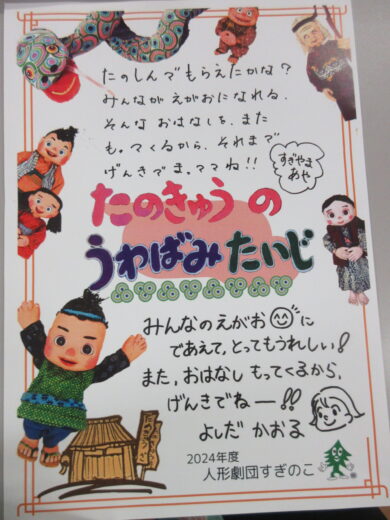 たのしんでもらえたかな？
みんながえがおになれる、
そんなおはなしを、また
もってくるから、それまで
げんきでまっててね!!
すぎやま
あや
たのきゅうの
うわばみたいじ
みんなのえがお に
であえて、とってもうれしい!
また、おはなしもってくるから、
げんきでねー!!
よしだ かおる
2024年度
人形劇団すぎのこ